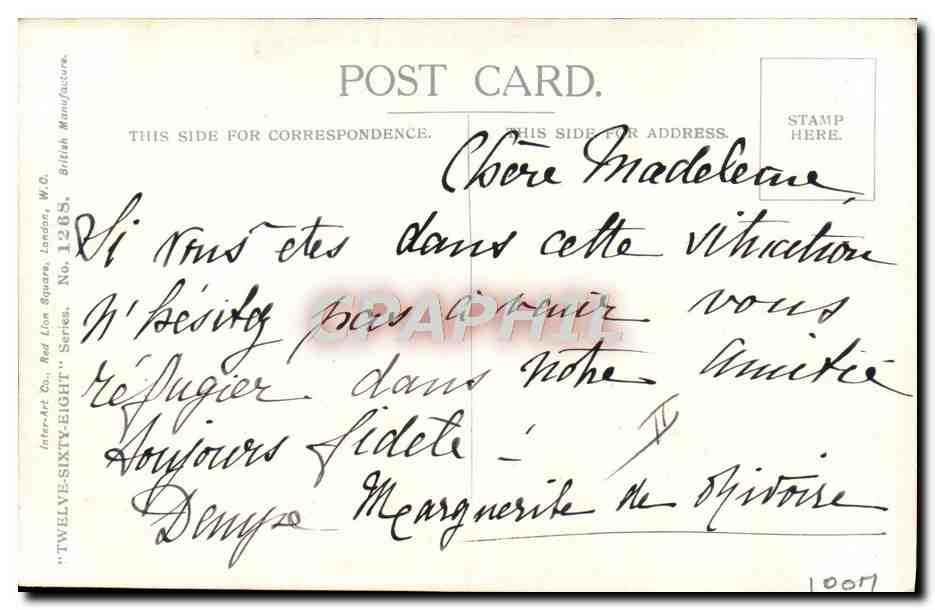 POST CARD.
THIS SIDE FOR CORRESPONDENCE.
THIS SIDE FOR ADDRESS.
STAMP
HERE.
Inter-Art Co., Red Lion Square, London, W.C.
"TWELVE-SIXTY-EIGHT" Series. No. 1268. British Manufacture.
Chère Madeleine
Si vous etes dans cette situation
n'hésitez pas à venir vous
réfugier dans notre amitié
toujours fidèle !
Denyse Marguerite de
II
CPAPHIL
1007